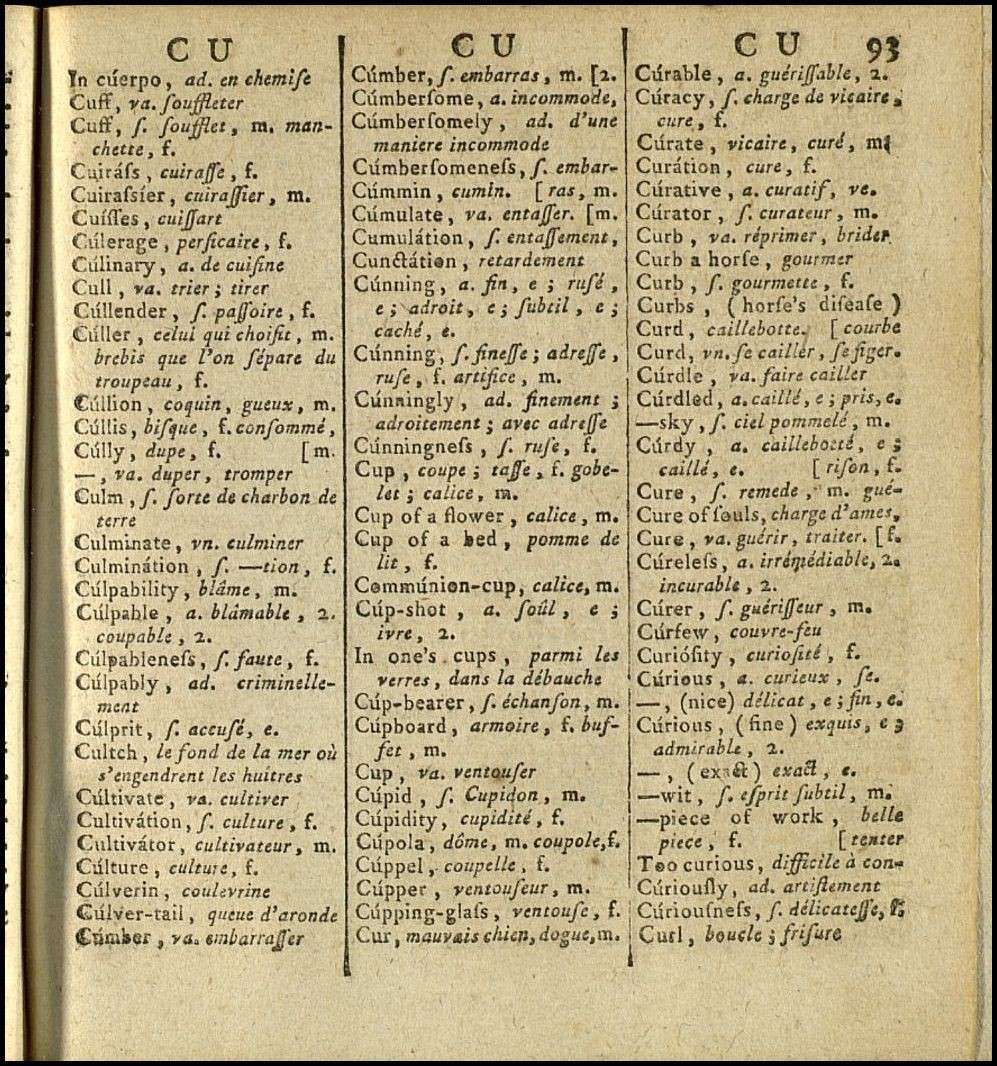 C U
In cúerpo, ad. en chemiſe
Cuff, va. ſouffleter
Cuff, ſ. ſoufflet, m. man-
chette, f.
Cuiráſs, cuiraſſe, f.
Cuiraſsíer, cuiraſſier, m.
Cuíſſes, cuiſſart
Cúlerage, perſicaire, f.
Cúlinary, a. de cuiſine
Cull, va. trier; tirer
Cúllender, ſ. paſſoire, f.
Cúller, celui qui choiſit, m.
brebis que l'on ſépare du
troupeau, f.
Cúllion, coquin, gueux, m.
Cúllis, biſque, f. conſommé,
Cúlly, dupe, f. [m.
—, va. duper, tromper
Culm, ſ. ſorte de charbon de
terre
Culminate, vn. culminer
Culminátion, ſ. —tion, f.
Cúlpability, blâme, m.
Cúlpable, a. blâmable, 2.
coupable, 2.
Cúlpableneſs, ſ. faute, f.
Cúlpably, ad. criminelle-
ment
Cúlprit, ſ. accuſé, e.
Cultch, le fond de la mer où
s'engendrent les huîtres
Cúltivate, va. cultiver
Cultivátion, ſ. culture, f.
Cultivátor, cultivateur, m.
Cúlture, culture, f.
Cúlverin, coulevrine
Cúlver-tail, queue d'aronde
Cúmber, va. embarraſſer
C U
Cúmber, ſ. embarras, m. [2.
Cúmberſome, a. incommode,
Cúmberſomely, ad. d'une
maniere incommode
Cúmberſomeneſs, ſ. embar-
Cúmmin, cumin. [ras, m.
Cúmulate, va. entaſſer. [m.
Cumulátion, ſ. entaſſement,
Cunctátion, retardement
Cúnning, a. fin, e; ruſé,
e; adroit, e; ſubtil, e;
caché, e.
Cúnning, ſ. fineſſe; adreſſe,
ruſe, f. artifice, m.
Cúnningly, ad. finement;
adroitement; avec adreſſe
Cúnningneſs, ſ. ruſe, f.
Cup, coupe; taſſe, f. gobe-
let; calice, m.
Cup of a flower, calice, m.
Cup of a bed, pomme de
lit, f.
Commúnion-cup, calice, m.
Cúp-shot, a. ſoûl, e;
ivre, 2.
In one's cups, parmi les
verres, dans la débauche
Cúp-bearer, ſ. échanſon, m.
Cúpboard, armoire, f. buf-
fet, m.
Cup, va. ventouſer
Cúpid, ſ. Cupidon, m.
Cúpidity, cupidité, f.
Cúpola, dôme, m. coupole, f.
Cúppel, coupelle, f.
Cúpper, ventouſeur, m.
Cúpping-glaſs, ventouſe, f.
Cur, mauvais chien, dogue, m.
C U 93
Cúrable, a. guériſſable, 2.
Cúracy, ſ. charge de vicaire,
cure, f.
Cúrate, vicaire, curé, m
Curátion, cure, f.
Cúrative, a. curatif, ve.
Cúrator, ſ. curateur, m.
Curb, va. réprimer, brider
Curb a horſe, gourmer
Curb, ſ. gourmette, f.
Curbs, (horſe's diſeaſe)
Curd, caillebotte. [courbe
Curd, vn. ſe cailler, ſe figer.
Cúrdle, va. faire cailler
Cúrdled, a. caillé, e; pris, e.
—sky, ſ. ciel pommelé, m.
Cúrdy, a. caillebotté, e;
caillé, e. [riſon, f.
Cure, ſ. remede, m. gué-
Cure of ſouls, charge d'ames,
Cure, va. guérir, traiter. [f.
Cúreleſs, a. irrémédiable, 2.
incurable, 2.
Cúrer, ſ. guériſſeur, m.
Cúrfew, couvre-feu
Curióſity, curioſité, f.
Cúrious, a. curieux, ſe.
—, (nice) délicat, e; fin, e.
Cúrious, (fine) exquis, e;
admirable, 2.
—, (exact) exact, e.
—wit, ſ. eſprit ſubtil, m.
—piece of work, belle
piece, f. [tenter
Too curious, difficile à con-
Cúriouſly, ad. artiſtement
Cúriouſneſs, ſ. délicateſſe, f.
Curl, boucle; friſure